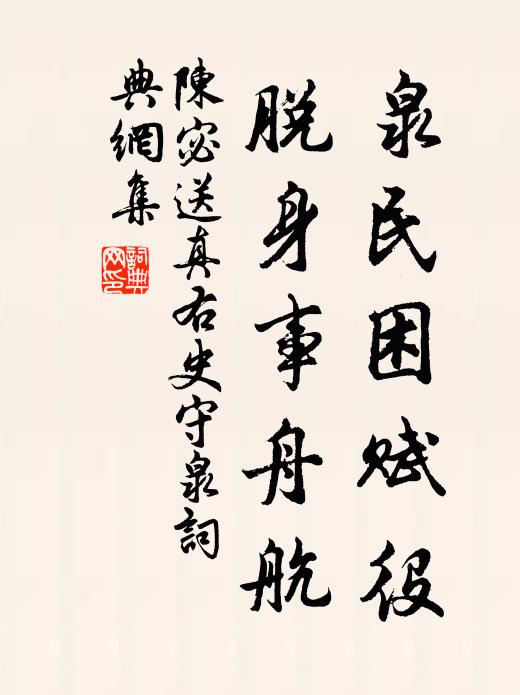 泉民困赋役
脱身事舟航
陳宓送真右史守泉詞
典網集
詞典网印